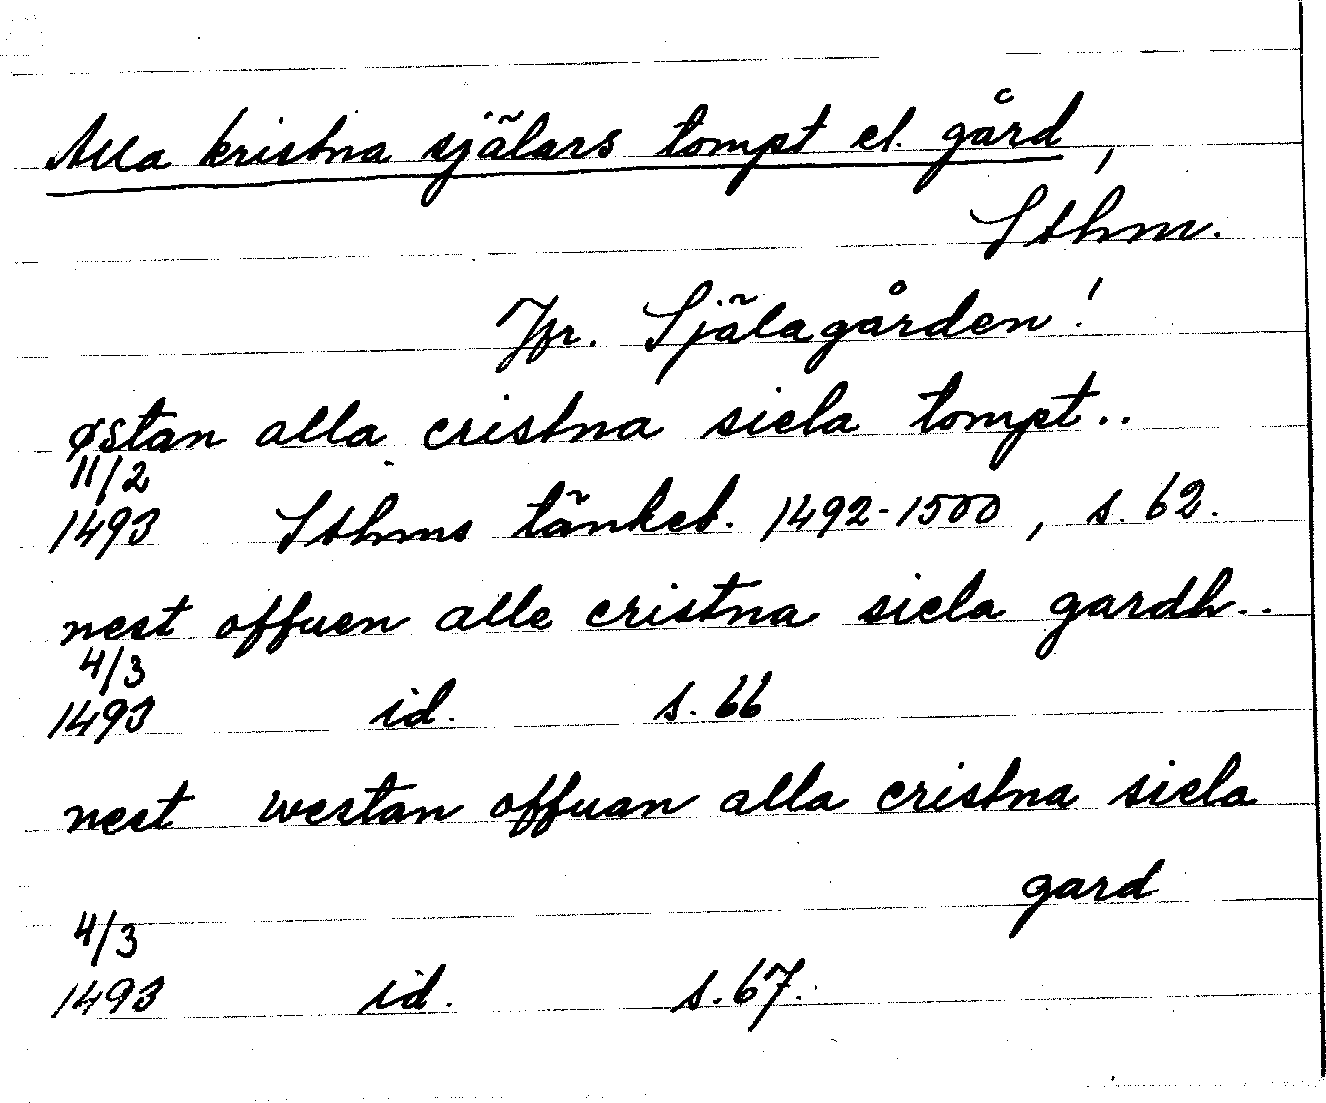 Alla kristna själars tompt el. gård,
Sthm.
Jfr. Själagården!
østan alla cristna siela tompt..
11/2
1493 Sthms tänkeb. 1492-1500, s. 62.
nest offuen alle cristna siela gardh..
4/3
1493 id. s. 66
nest westan offuan alla cristna siela
gard
4/3
1493 id. s. 67.